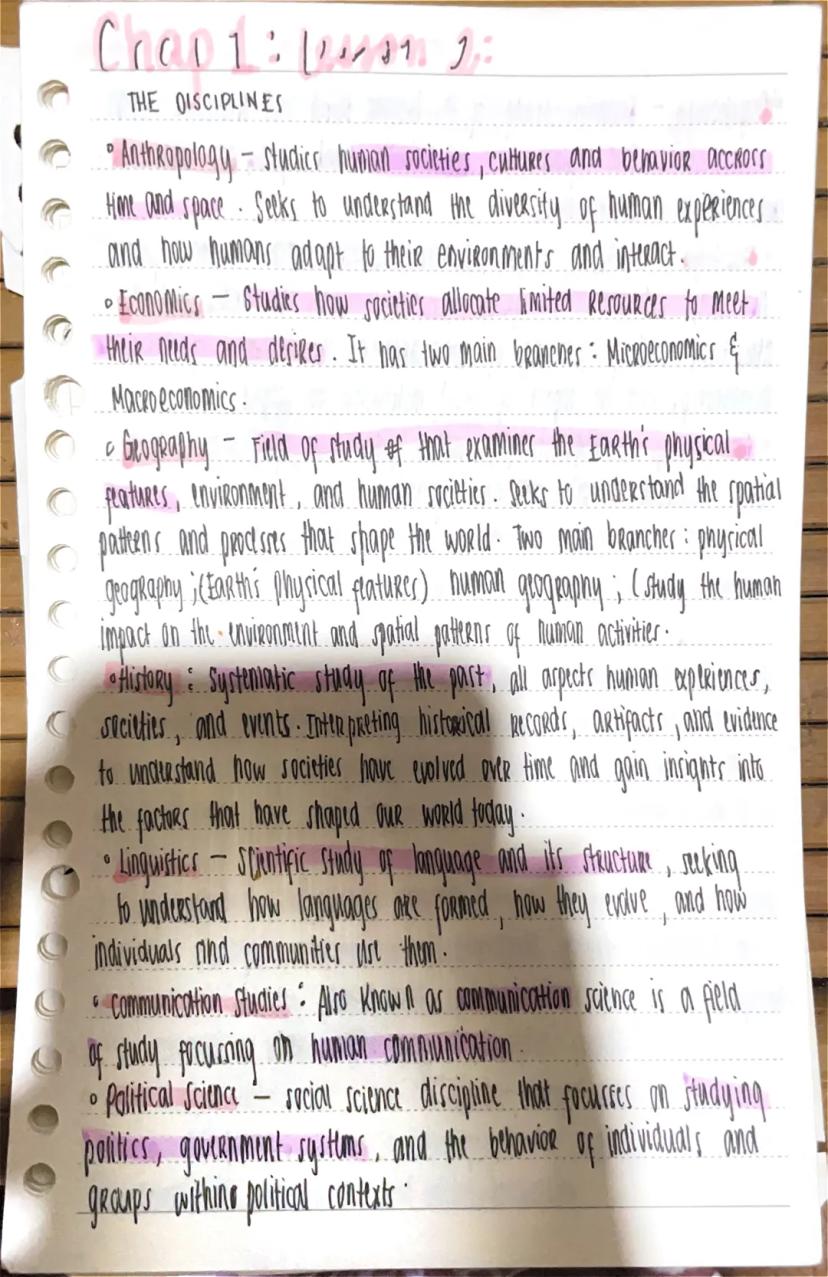 Chap 1: Lesson 2:
THE DISCIPLINES
° Anthropology – studies human societies, cultures and behavior accross
time and space. Seeks to understand the diversity of human experiences
and how humans adapt to their environments and interact.
° Economics – Studies how societies allocate limited Resources to meet
their needs and desires. It has two main branches: Microeconomics &
Macroeconomics.
° Geography – Field of study of that examines the Earth's physical
features, environment, and human societies. Seeks to understand the spatial
patterns and processes that shape the world. Two main branches: physical
geography; (Earth's physical features) human geography; (study the human
impact on the environment and spatial patterns of human activities.
° History: Systematic study of the past, all aspects human experiences,
societies, and events. Interpreting historical records, artifacts, and evidence
to understand how societies have evolved over time and gain insights into
the factors that have shaped our world today.
° Linguistics – Scientific study of language and its structure, seeking
to understand how languages are formed, how they evolve, and how
individuals and communities use them.
° Communication Studies: Also known as communication science is a field
of study focussing on human communication.
° Political Science – social science discipline that focusses on studying
politics, government systems, and the behavior of individuals and
groups within political contexts.